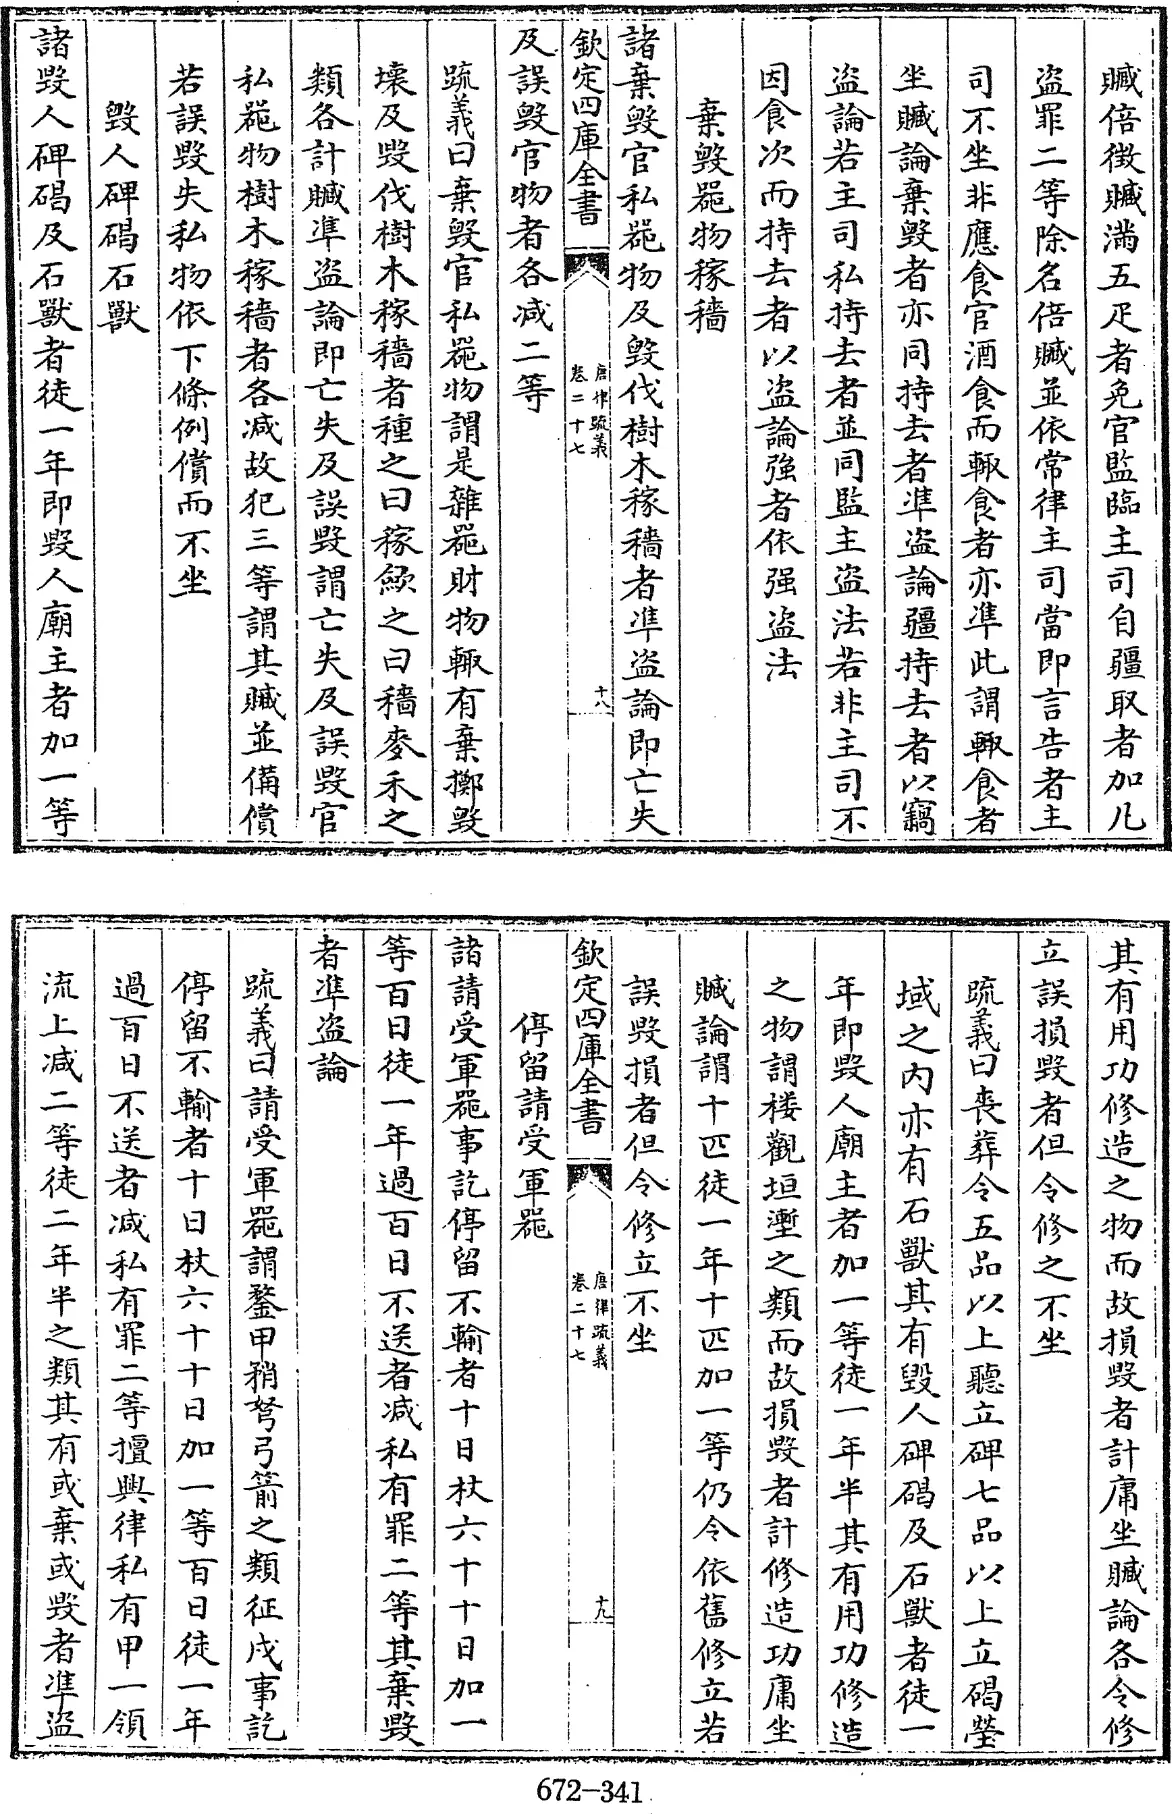 贓倍徴贓滿五疋者免官監臨主司自彊取者加凡
盗罪二等除名倍贓並依常律主司當即言告者主
司不坐非應食官酒食而輒食者亦凖此謂輒食者
坐贓論棄毀者亦同持去者凖盗論彊持去者以竊
盗論若主司私持去者並同監主盗法若非主司不
因食次而持去者以盗論強者依强盗法
棄毀器物稼穡
諸棄毀官私器物及毀伐樹木稼穡者凖盗論即亡失
欽定四庫全書
唐律疏義
卷二十七
十八
及誤毀官物者各減二等
疏義曰棄毀官私器物謂是雜器財物輒有棄擲毀
壞及毀伐樹木稼穡者種之曰稼歛之曰穡麥禾之
類各計贓凖盗論即亡失及誤毀謂亡失及誤毀官
私器物樹木稼穡者各減故犯三等謂其贓並備償
若誤毀失私物依下條例償而不坐
毀人碑碣石獸
諸毀人碑碣及石獸者徒一年即毀人廟主者加一等
其有用功修造之物而故損毀者計庸坐贓論各令修
立誤損毀者但令修之不坐
疏義曰喪葬令五品以上聽立碑七品以上立碣塋
域之内亦有石獸其有毀人碑碣及石獸者徒一
年即毀人廟主者加一等徒一年半其有用功修造
之物謂楼觀垣壍之類而故損毀者計修造功庸坐
贓論謂十匹徒一年十匹加一等仍令依舊修立若
誤毀損者但令修立不坐
欽定四庫全書
唐律疏義
卷二十七
十九
停留請受軍器
諸請受軍器事訖停留不輸者十日杖六十十日加一
等百日徒一年過百日不送者減私有罪二等其棄毀
者凖盗論
疏義曰請受軍器謂鍪甲矟弩弓箭之類征戍事訖
停留不輸者十日杖六十十日加一等百日徒一年
過百日不送者減私有罪二等擅興律私有甲一領
流上減二等徒二年半之類其有或棄或毀者凖盗
672-341